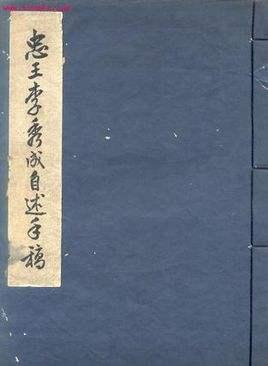 忠王李秀成自述手稿